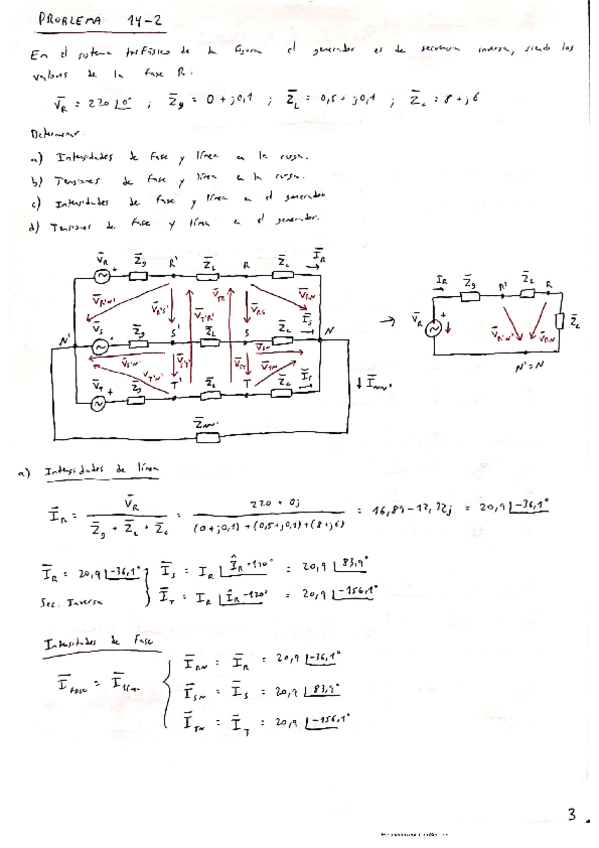 PROBLEMA 14-2
En el sistema trifásico de la figura el generador es de secuencia inversa, siendo los
valores de la fase R:
V̄R = 220∠0° ; Z̄g = 0 + j0,1 ; Z̄L = 0,5 + j0,1 ; Z̄c = 8 + j6
Determinar:
a) Intensidades de fase y línea en la carga.
b) Tensiones de fase y línea en la carga.
c) Intensidades de fase y línea en el generador
d) Tensiones de fase y línea en el generador.
V̄R + Z̄g R' Z̄L R Z̄c ĪR
V̄R'N' V̄R'S' V̄T'R' V̄TR V̄RS V̄RN
N' V̄S Z̄g S' Z̄L S Z̄c ĪS N
V̄S'N' V̄S'T' V̄SN V̄ST
V̄T'N' V̄TN
V̄T + Z̄g T' Z̄L T Z̄c ĪT
Z̄NN' ↓ ĪNN'
→ ĪR Z̄g R' Z̄L R
V̄R + V̄R'N' V̄RN Z̄c
N'=N
a) Intensidades de línea
ĪR = V̄R / (Z̄g + Z̄L + Z̄c) = (220 + 0j) / ((0+j0,1)+(0,5+j0,1)+(8+j6)) = 16,89-12,32j = 20,9∠-36,1°
ĪR = 20,9∠-36,1° } ĪS = IR = 20,9∠83,9°
Sec. Inversa } ĪT = IR∠ÎR-120° = 20,9∠-156,1°
Intensidades de Fase
Īfase = Īlínea { ĪRN = ĪR = 20,9∠-36,1°
ĪSN = ĪS = 20,9∠83,9°
ĪTN = ĪT = 20,9∠-156,1°
3